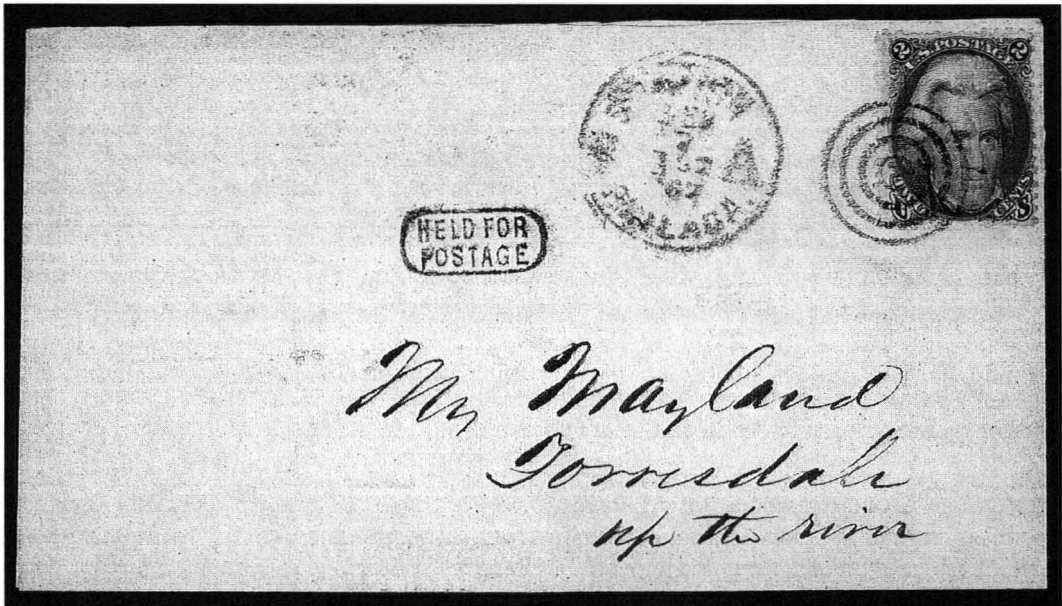 2 U.S. POSTAGE 2
TWO CENTS
PHILADA.
A
HELD FOR
POSTAGE
Mr Mayland
Torresdale
up the river